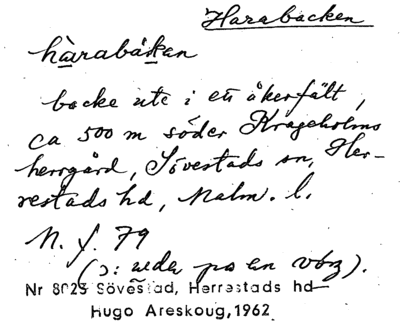 Harabacken
hàrabákan
backe ute i ett åkerfält,
ca 500 m söder Krageholms
herrgård, Sövestads sn, Her-
restads hd, Malm. l.
M. f. 79
(ɔ: uden på en
Nr 8025 Sövestad, Herrestads hd
Hugo Areskoug, 1962